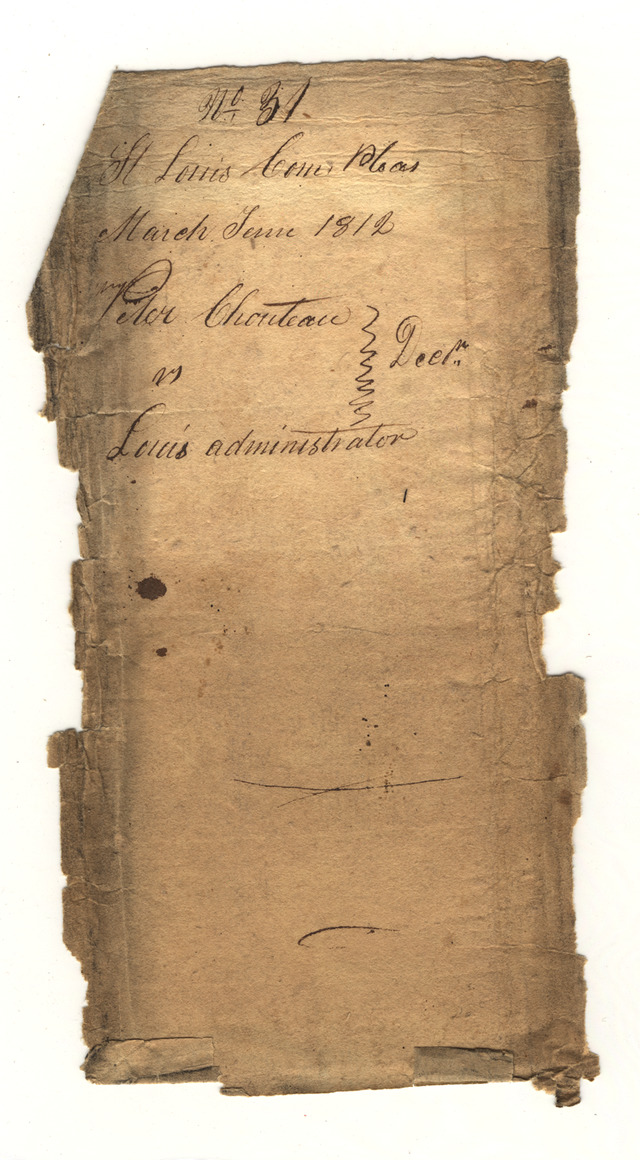 No. 31
St Louis Com. Pleas
March Term 1812
Peter Chouteau
vs
Decln.
Louis administrator